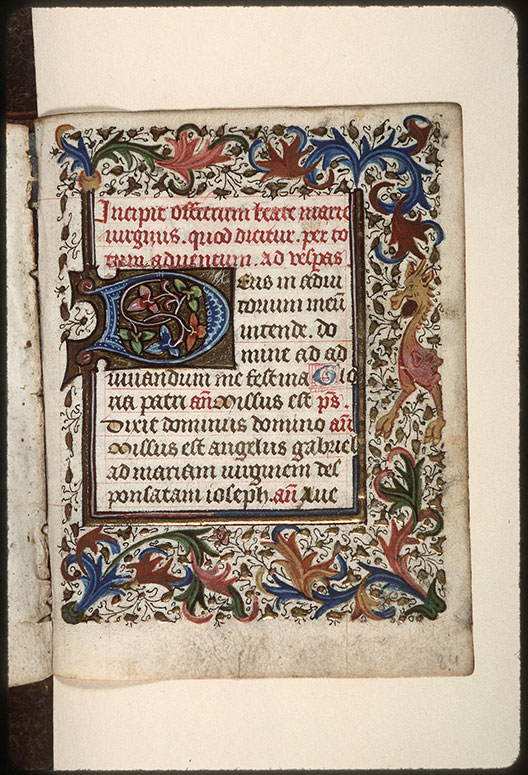 Incipit officium beate marie
uirginis. quod dicitur. per to
tum aduentum. ad vesp̄as
Deus in adiu
torium meū
intende. do
mine ad ad
iuuandum me festina Glo
ria patri añ Missus est p̄s.
Dixit dominus domino añ
Missus est angelus gabriel
ad mariam uirginem des
ponsatam ioseph. añ Aue
84